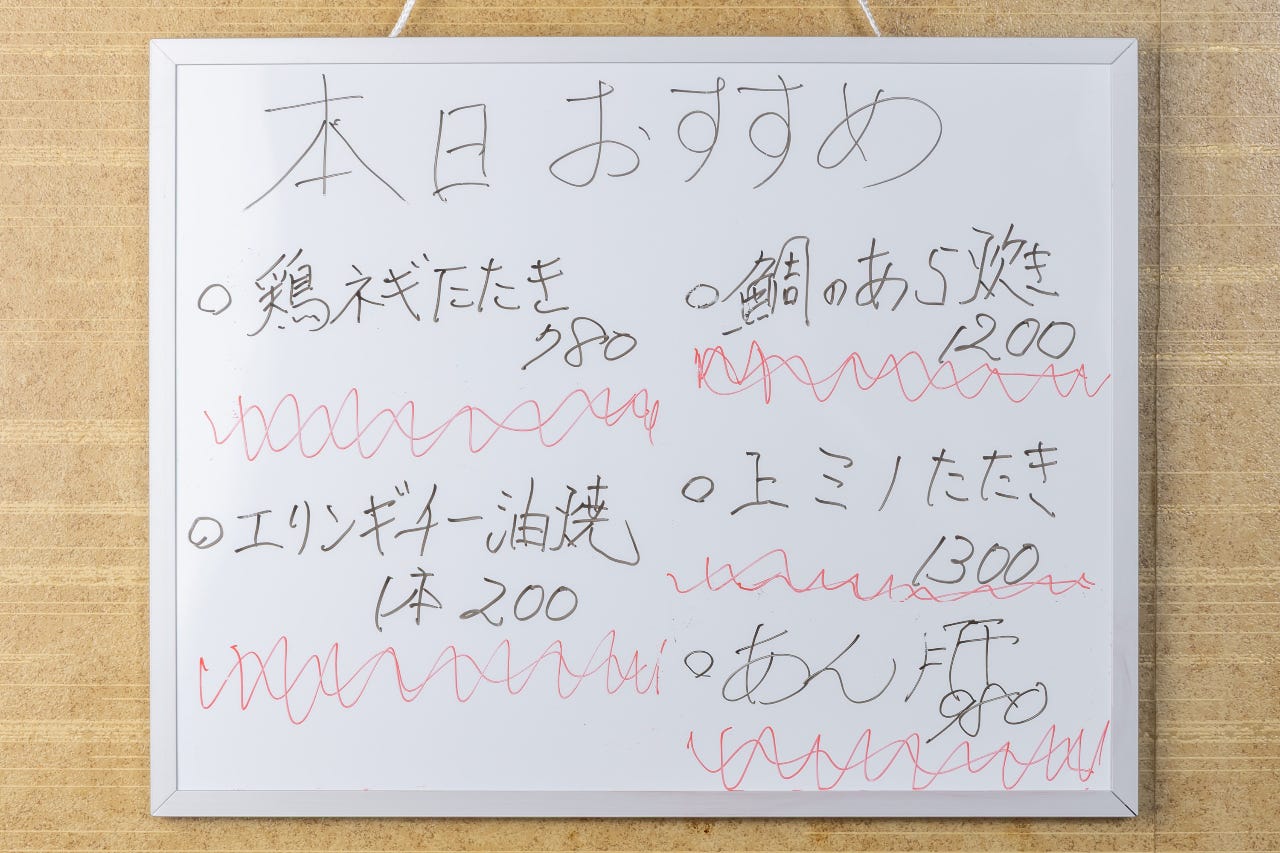 本日おすすめ
○鶏ネギたたき
780
○エリンギチー油焼
1本200
○鯛のあら炊き
1200
○上ミノたたき
1300
○あん肝
980